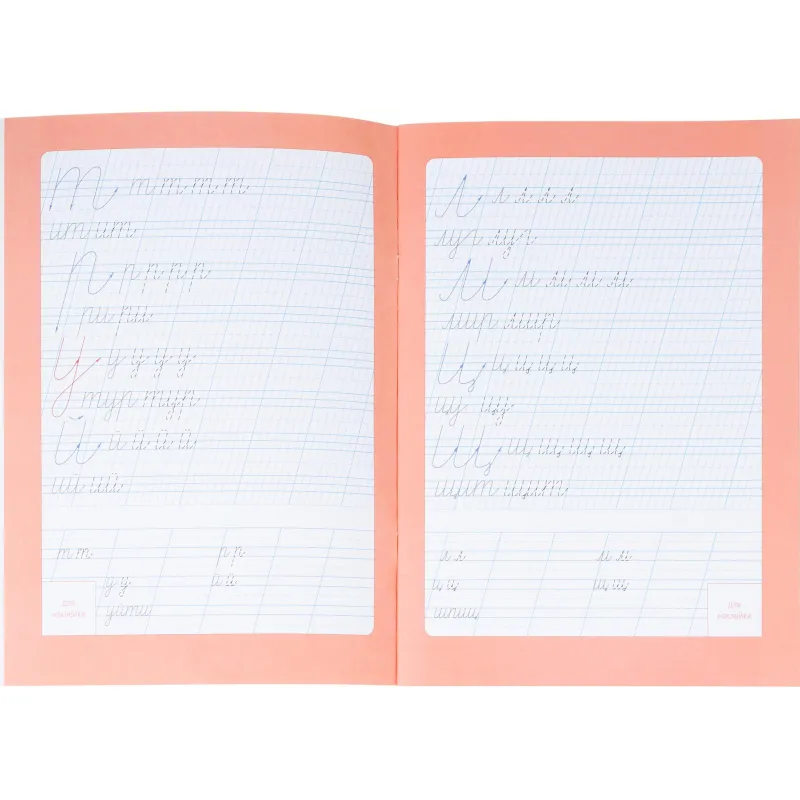 т т т т т
ит ит
р р р р р
ри ри
у у у у у
тур тур
й й й й й
ий ий
т т
р р
у у
й й
ДЛЯ
НАКЛЕЙКИ
л л л л л
м м м м м
мир мир
ц ц ц ц ц
цу цу
щ щ щ щ щ
щит щит
л л
м м
ц ц
щ щ
ДЛЯ
НАКЛЕЙКИ